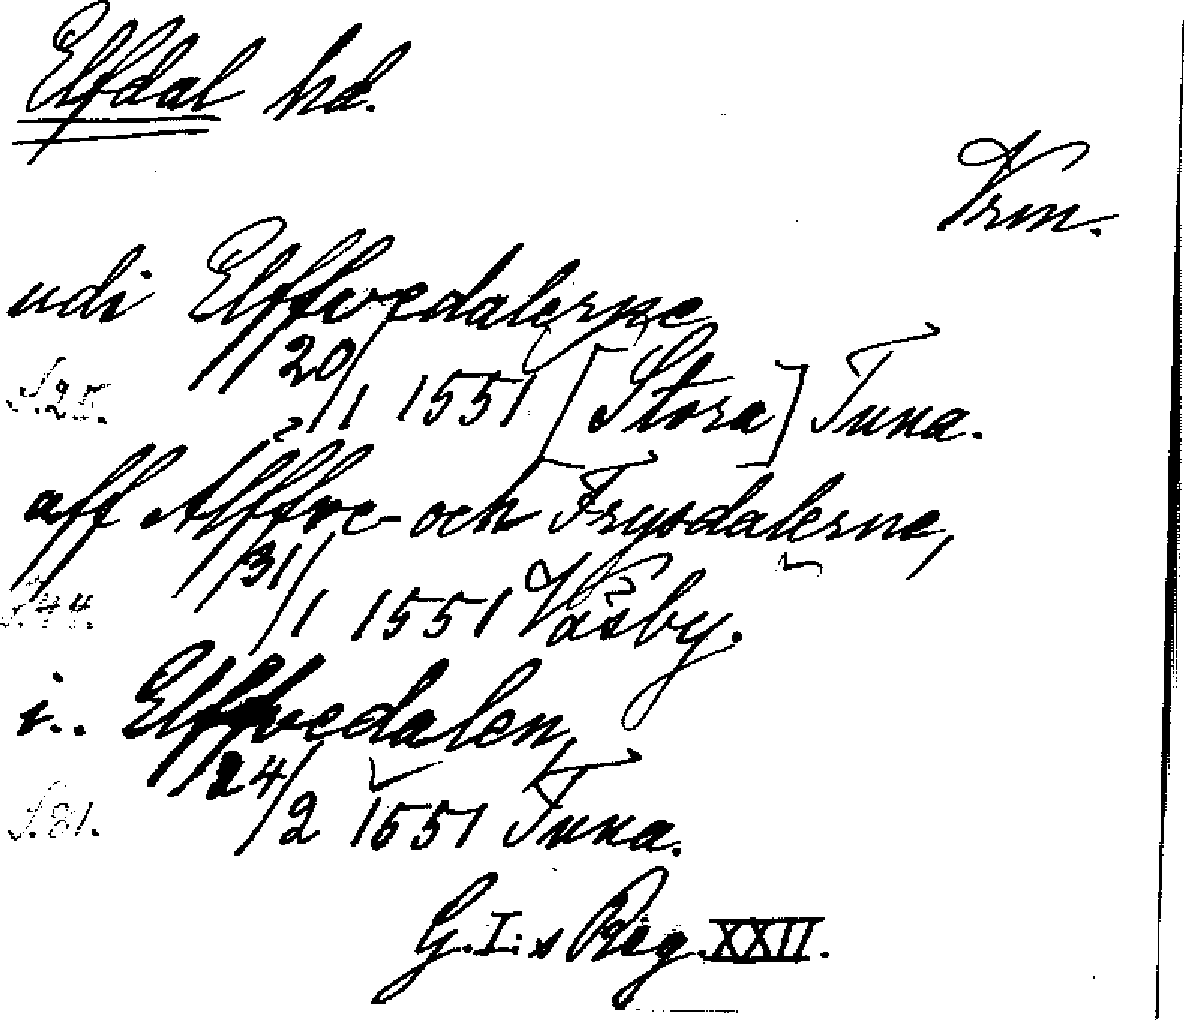 Elfdal hd.
Vrm.
udi Elffvedalerne
S.25. 20/1 1551 [Stora] Tuna.
aff Alffve- och Frysdalerne,
S.44. 31/1 1551 Väsby.
i.. Elffvedalen,
S.81. 24/2 1551 Tuna.
G.I:s Reg. XXII.